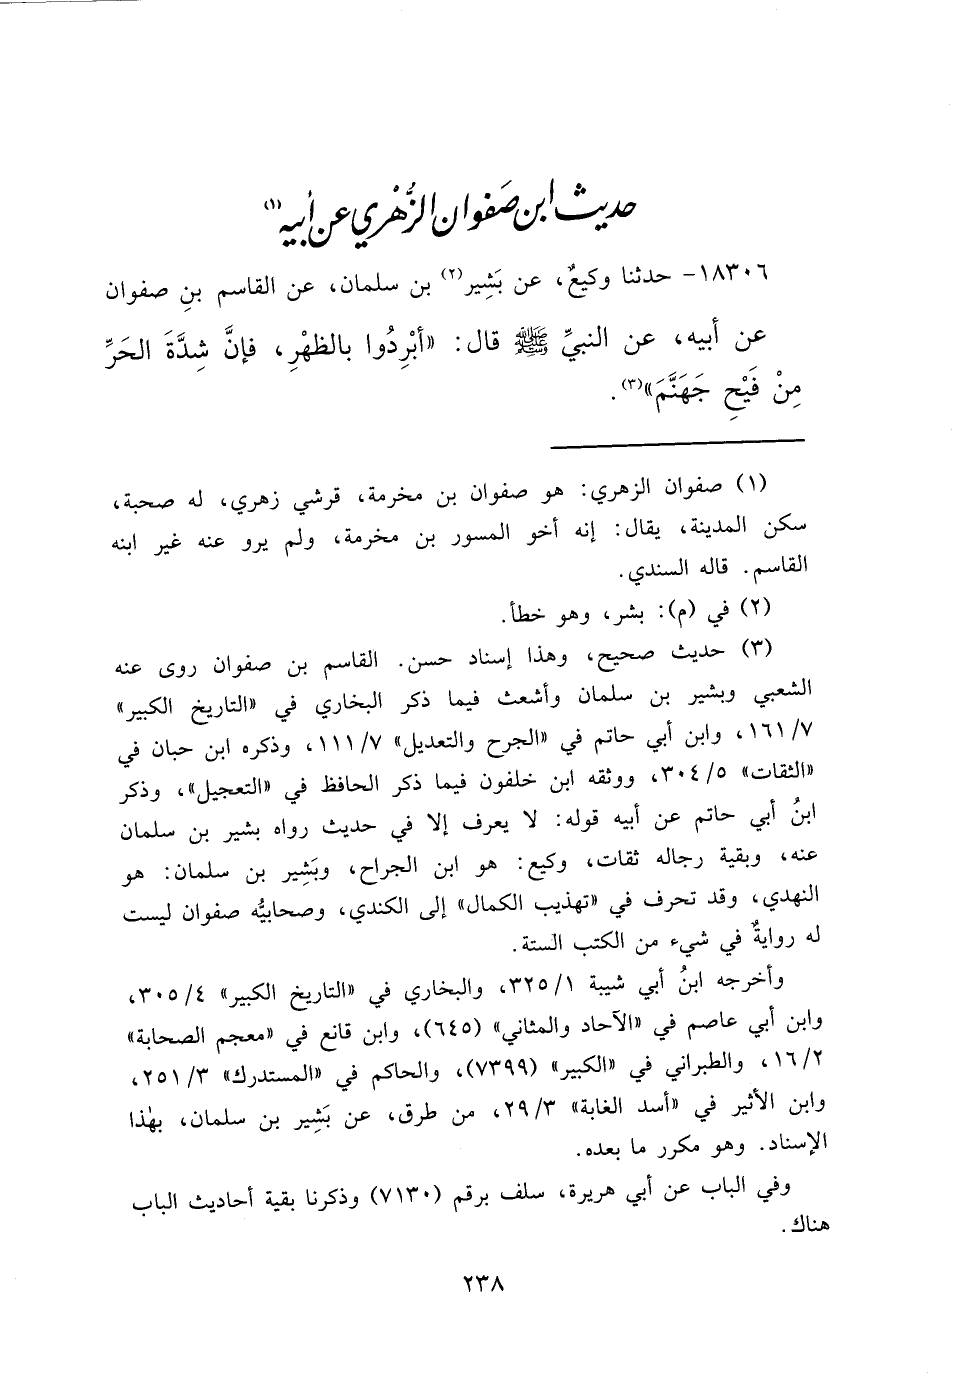 حديث ابن صَفوان الزُّهْري عن أبيه(١)
١٨٣٠٦- حدثنا وكيعٌ، عن بَشِير(٢) بن سلمان، عن القاسم بنِ صفوان
عن أبيه، عن النبيِّ ﷺ قال: «أبْرِدُوا بالظهْرِ، فإنَّ شِدَّةَ الحَرِّ
مِنْ فَيْحِ جَهَنَّمَ»(٣).
(١) صفوان الزهري: هو صفوان بن مخرمة، قرشي زهري، له صحبة،
سكن المدينة، يقال: إنه أخو المسور بن مخرمة، ولم يرو عنه غير ابنه
القاسم. قاله السندي.
(٢) في (م): بشر، وهو خطأ.
(٣) حديث صحيح، وهذا إسناد حسن. القاسم بن صفوان روى عنه
الشعبي وبشير بن سلمان وأشعث فيما ذكر البخاري في «التاريخ الكبير»
٧/ ١٦١، وابن أبي حاتم في «الجرح والتعديل» ٧/ ١١١، وذكره ابن حبان في
«الثقات» ٥/ ٣٠٤، ووثقه ابن خلفون فيما ذكر الحافظ في «التعجيل»، وذكر
ابنُ أبي حاتم عن أبيه قوله: لا يعرف إلا في حديث رواه بشير بن سلمان
عنه، وبقية رجاله ثقات، وكيع: هو ابن الجراح، وبَشِير بن سلمان: هو
النهدي، وقد تحرف في «تهذيب الكمال» إلى الكندي، وصحابيُّه صفوان ليست
له روايةٌ في شيء من الكتب الستة.
وأخرجه ابنُ أبي شيبة ١/ ٣٢٥، والبخاري في «التاريخ الكبير» ٤/ ٣٠٥،
وابن أبي عاصم في «الآحاد والمثاني» (٦٤٥)، وابن قانع في «معجم الصحابة»
٢/ ١٦، والطبراني في «الكبير» (٧٣٩٩)، والحاكم في «المستدرك» ٣/ ٢٥١،
وابن الأثير في «أسد الغابة» ٣/ ٢٩، من طرق، عن بَشِير بن سلمان، بهٰذا
الإسناد. وهو مكرر ما بعده.
وفي الباب عن أبي هريرة، سلف برقم (٧١٣٠) وذكرنا بقية أحاديث الباب
هناك.
٢٣٨